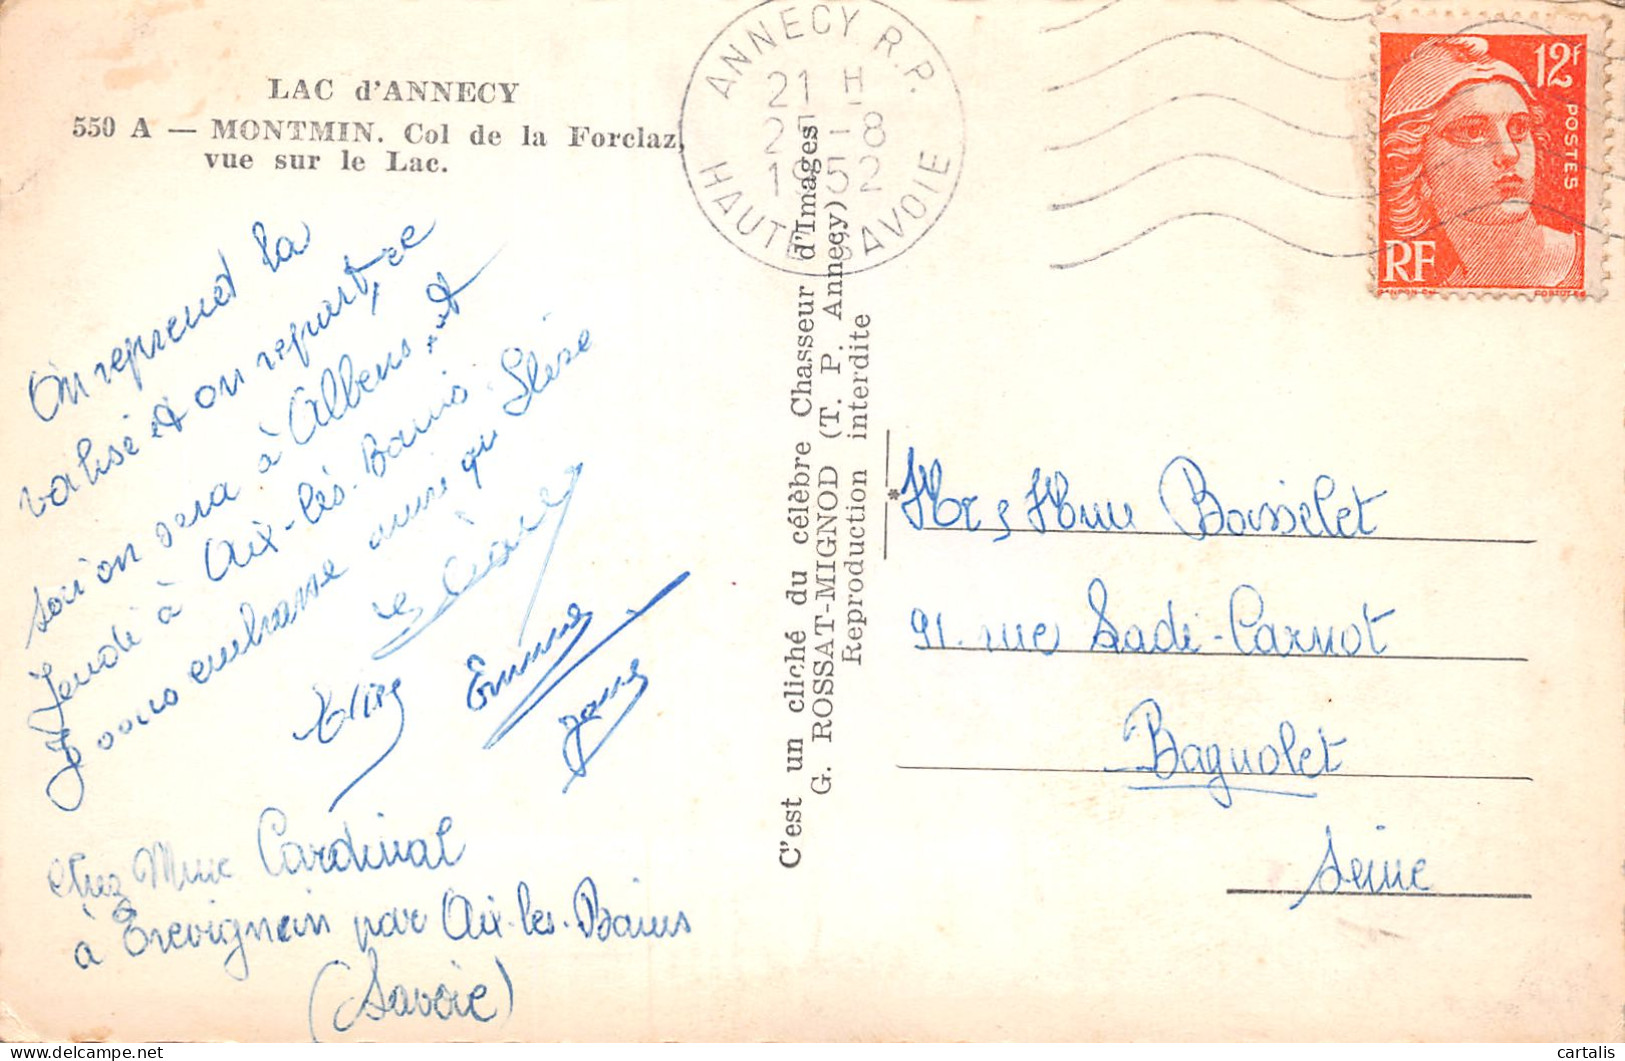 LAC d'ANNECY
550 A — MONTMIN. Col de la Forclaz,
vue sur le Lac.
On reprend la
valise et on repart, ce
soir on sera à Albens et
Jeudi à Aix-les-Bains.
Je vous embrasse
Emme
chez Mme Cardinal
à Trevignin par Aix-les-Bains
(Savoie)
C'est un cliché du célèbre Chasseur d'Images
G. ROSSAT-MIGNOD (T. P. Annecy)
Reproduction interdite
*
ANNECY R.P.
21 H
-8
1952
HAUTE SAVOIE
12f
POSTES
RF
Mr & Mme Boisselet
91. rue Sadi-Carnot
Bagnolet
Seine
cartalis